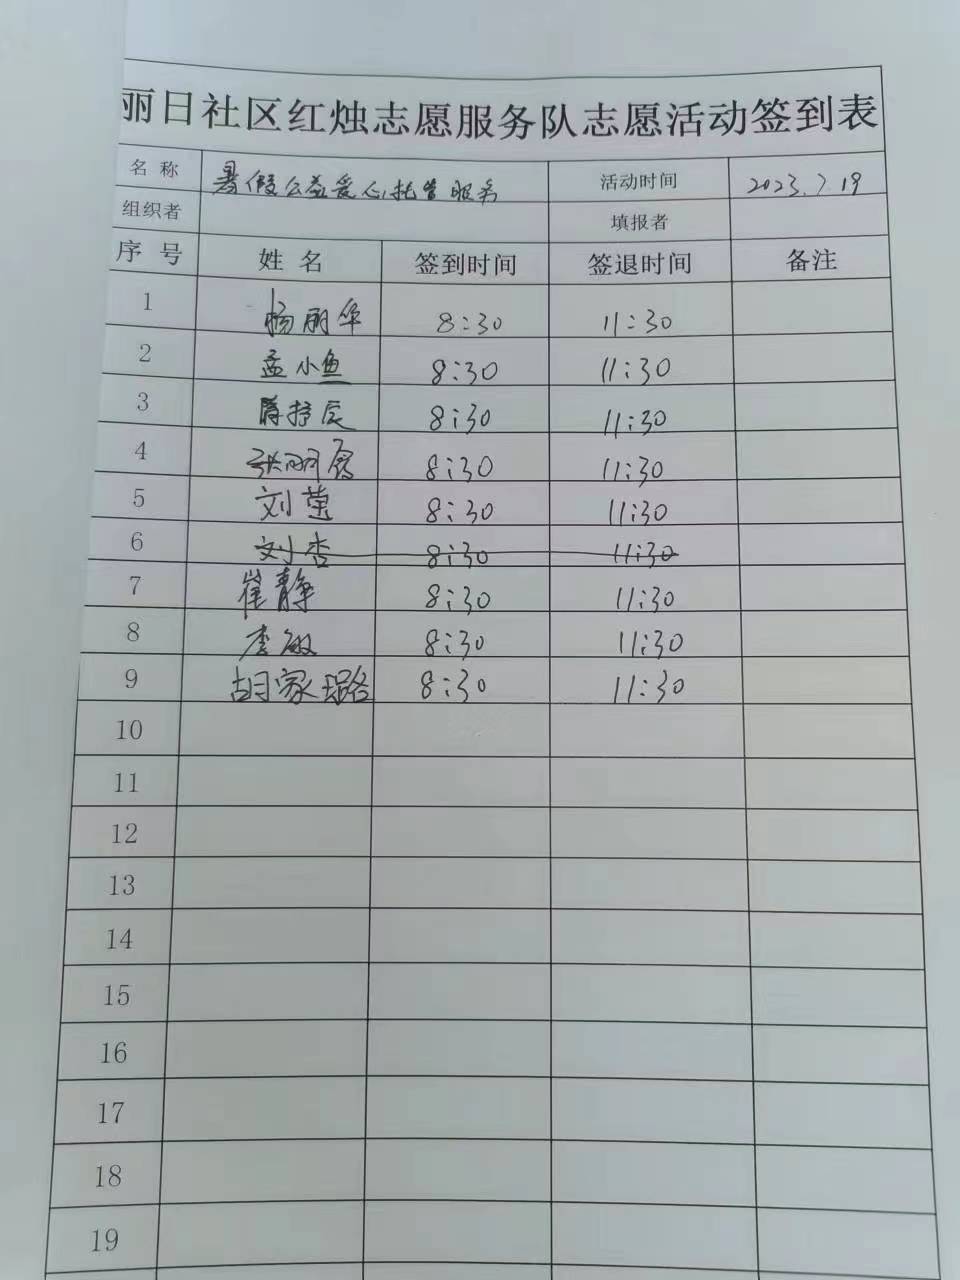 丽日社区红烛志愿服务队志愿活动签到表
名 称 暑假公益爱心托管服务 活动时间 2023.7.19
组织者 填报者
序 号 姓 名 签到时间 签退时间 备注
1 杨丽华 8:30 11:30
2 孟小鱼 8:30 11:30
3 8:30 11:30
4 张丽 8:30 11:30
5 刘莹 8:30 11:30
6 刘杏 8:30 11:30
7 崔静 8:30 11:30
8 李敏 8:30 11:30
9 胡家璐 8:30 11:30
10
11
12
13
14
15
16
17
18
19